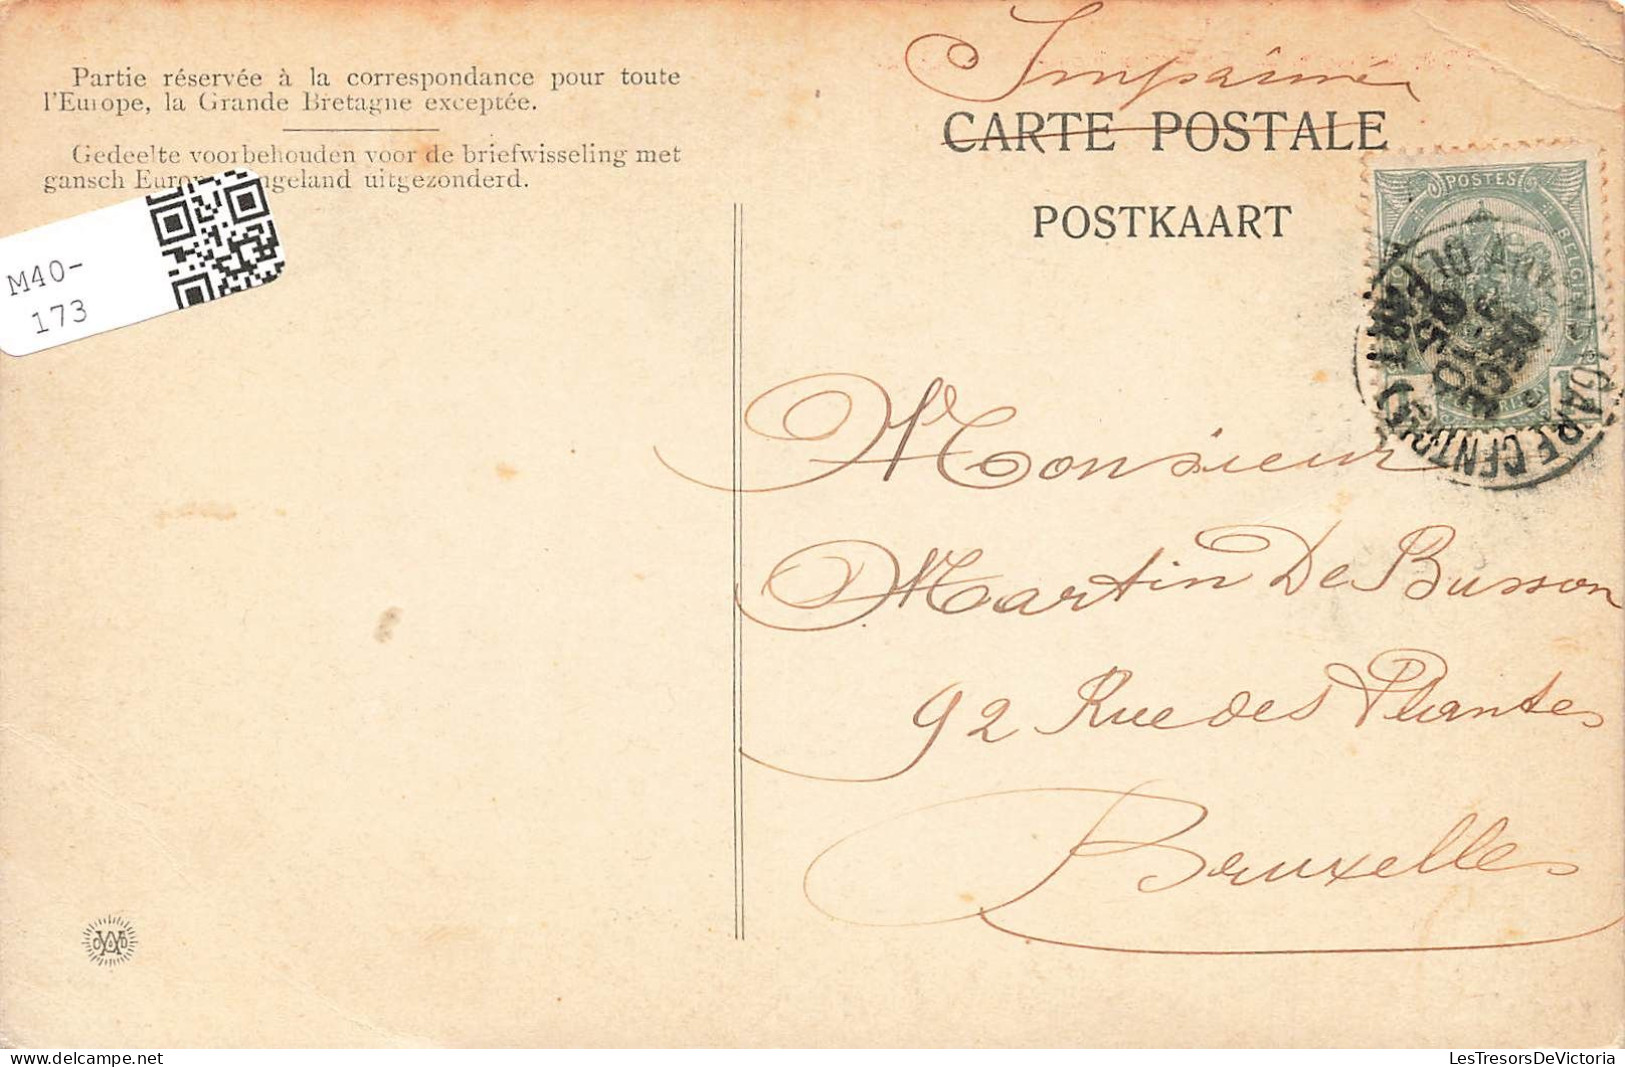 Partie réservée à la correspondance pour toute
l'Europe, la Grande Bretagne exceptée.
Gedeelte voorbehouden voor de briefwisseling met
gansch Europa ngeland uitgezonderd.
M40-
173
Imprimé
CARTE POSTALE
POSTKAART
POSTES
BELGIQUE
GARE CENTRE
Monsieur
Martin De Busson
92 Rue des Plantes
Bruxelles
delcampe.net
LesTresorsDeVictoria